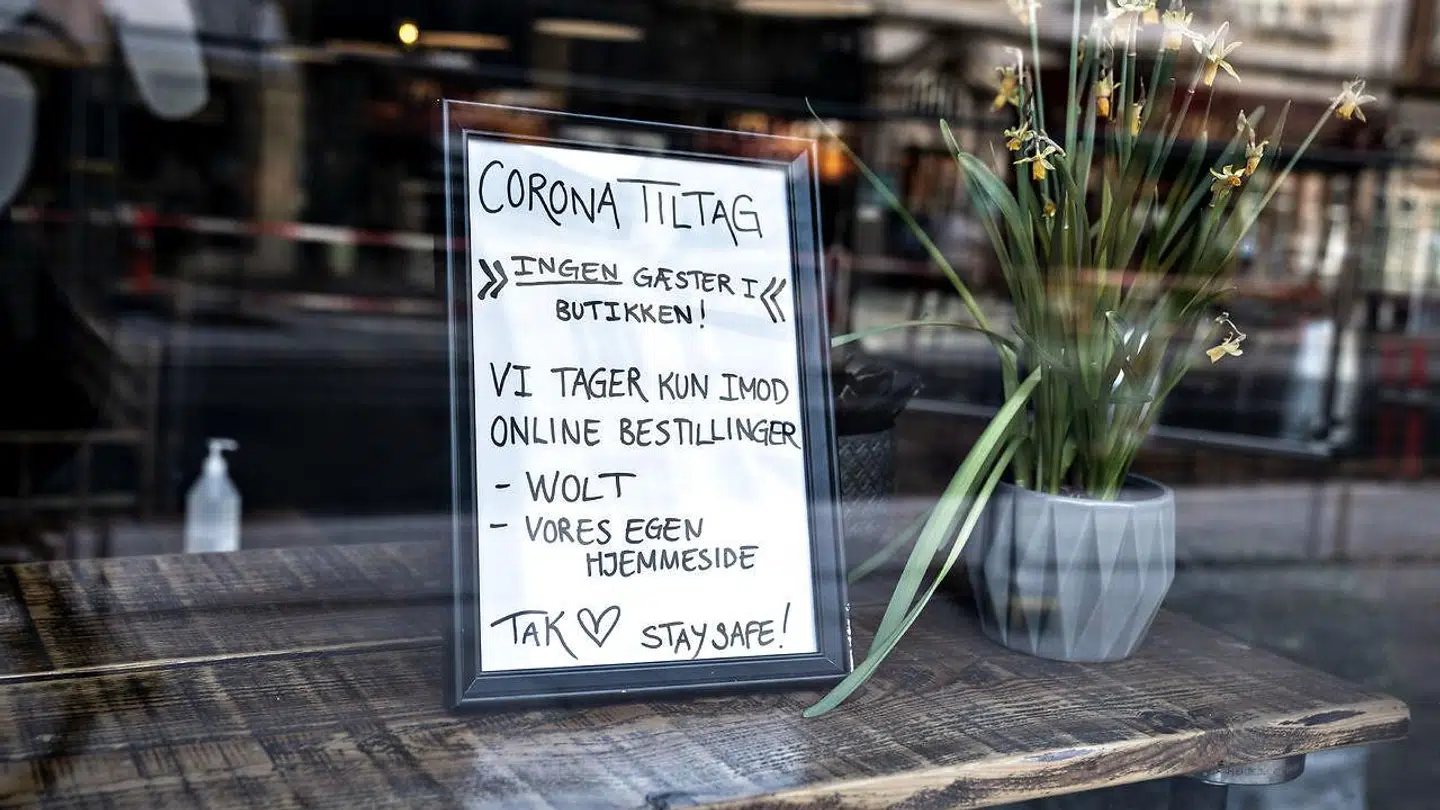 CORONA TILTAG
» INGEN GÆSTER I «
BUTIKKEN!
VI TAGER KUN IMOD
ONLINE BESTILLINGER
- WOLT
- VORES EGEN
HJEMMESIDE
TAK ♡ STAY SAFE!